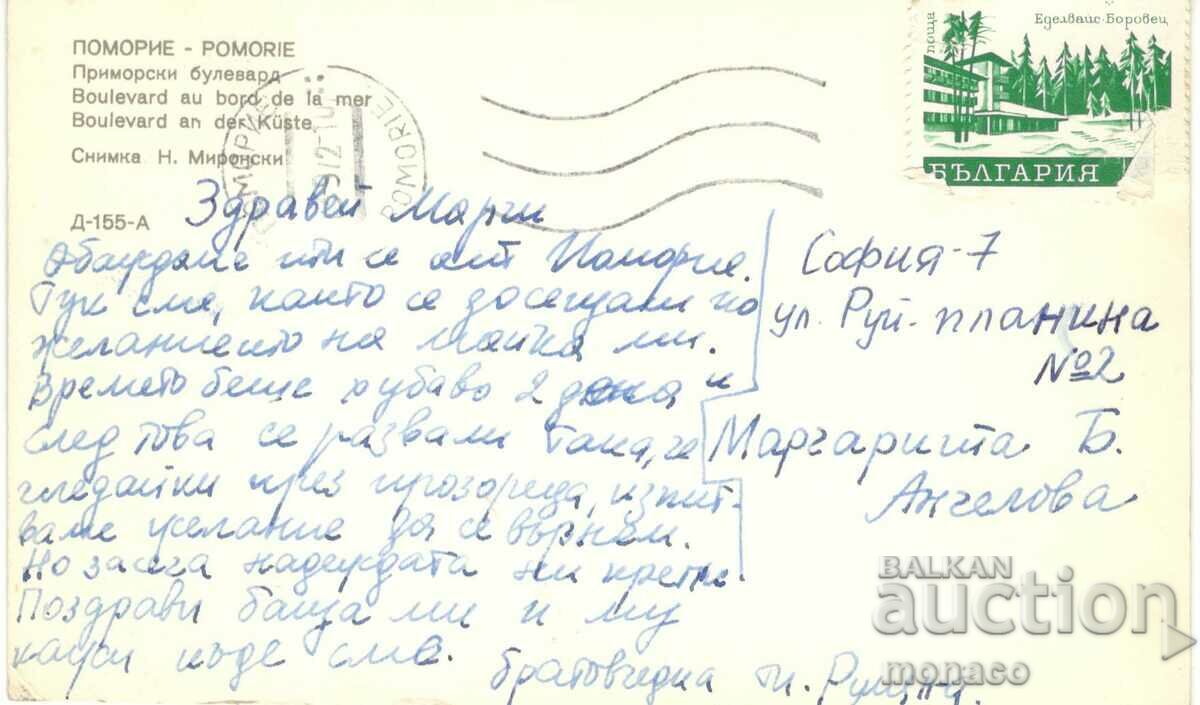 ПОМОРИЕ - POMORIE
Приморски булевард
Boulevard au bord de la mer
Boulevard an der Küste
Снимка Н. Миронски
Д-155-А
POMORIE
поща
Еделвайс-Боровец
БЪЛГАРИЯ
Здравей Марги
Обаждаме ти се от Поморие.
Тук сме, както се досещаш по
желанието на майка ми.
Времето беше хубаво 2 дена и
след това се развали така, че
гледайки през прозореца, изпит-
ваме желание да се върнем.
Но засега надеждата ни крепи.
Поздрави баща ми и му
кажи къде сме.
братовчедка ти
София-7
ул. Руй-планина
№2
Маргарита Б.
Ангелова
BALKAN
auction
monaco